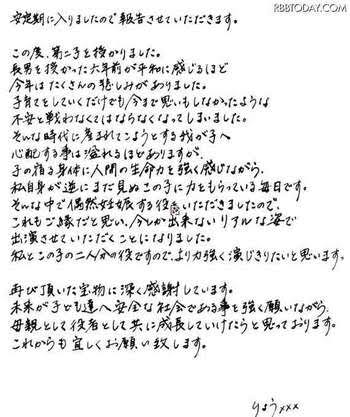 (C) RBBTODAY.COM
安定期に入りましたので報告させていただきます。
この度、第二子を授かりました。
長男を授かった六年前が平和に感じるほど
今年はたくさんの悲しみがありました。
子育てをしていくだけでも今まで思いもしなかったような
不安と戦わなくてはならなくなってしまいました。
そんな時代に産まれてこようとする我が子へ
心配する事は溢れるほどありますが、
子の宿る身体に人間の生命力を強く感じながら、
私自身が逆にまだ見ぬこの子に力をもらっている毎日です。
そんな中で偶然妊娠する役をいただきましたので、
これもご縁だと思い、今しか出来ないリアルな姿で
出演させていただくことになりました。
私とこの子の二人分の役ですので、より力強く演じきりたいと思います。
再び頂いた宝物に深く感謝しています。
未来が子ども達へ安全な社会である事を強く願いながら、
母親として役者として共に成長していけたらと思っております。
これからも宜しくお願い致します。
りょう×××